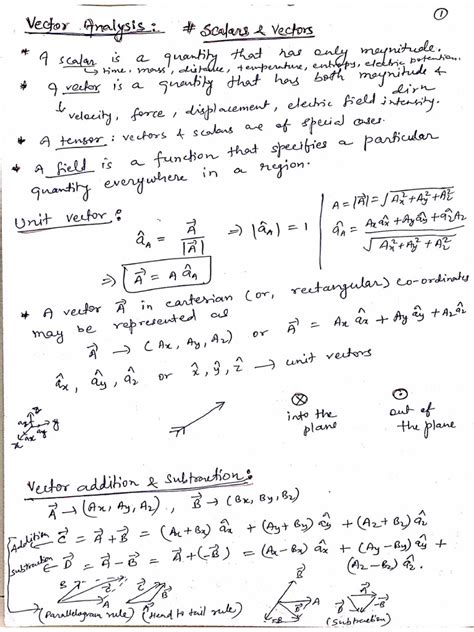 ①
Vector Analysis: # Scalars & Vectors
* A scalar is a quantity that has only magnitude.
↳ time, mass, distance, temperature, entropy, electric potential.
* A vector is a quantity that has both magnitude & dirn
↳ velocity, force, displacement, electric field intensity.
* A tensor : vectors & scalars are of special cases.
* A field is a function that specifies a particular
quantity everywhere in a region.
Unit vector:
â_A = A⃗ / |A⃗| ⇒ |â_A| = 1
A = |A⃗| = √(Ax² + Ay² + Az²)
â_A = (Ax âx + Ay ây + âz Az) / √(Ax² + Ay² + Az²)
⇒ A⃗ = A â_A
* A vector A⃗ in cartesian (or, rectangular) co-ordinates
may be represented as
A⃗ → (Ax, Ay, Az) or A⃗ = Ax âx + Ay ây + Az âz
âx, ây, âz or x̂, ŷ, ẑ → unit vectors
z y x az ay ax
⊗ into the plane
⊙ out of the plane
Vector addition & Subtraction:
A⃗ → (Ax, Ay, Az), B⃗ → (Bx, By, Bz)
Addition ← C⃗ = A⃗ + B⃗ = (Ax + Bx) âx + (Ay + By) ây + (Az + Bz) âz
Subtraction ← D⃗ = A⃗ - B⃗ = A⃗ + (-B⃗) = (Ax - Bx) âx + (Ay - By) ây +
(Az - Bz) âz.
B C A
C B A
B A -B
A D -B
(Parallelogram rule) (Head to tail rule) (Subtraction)